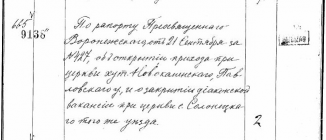 665
9136
По рапорту Преосвященнаго
Воронежскаго отъ 21 Сентября за
№ 927, объ открытіи прихода при
церкви хут. Новокаипинскаго, Пав-
ловскаго у, и о закрытіи діаконской
вакансіи при церкви с. Солонецка-
го того же уезда.
2